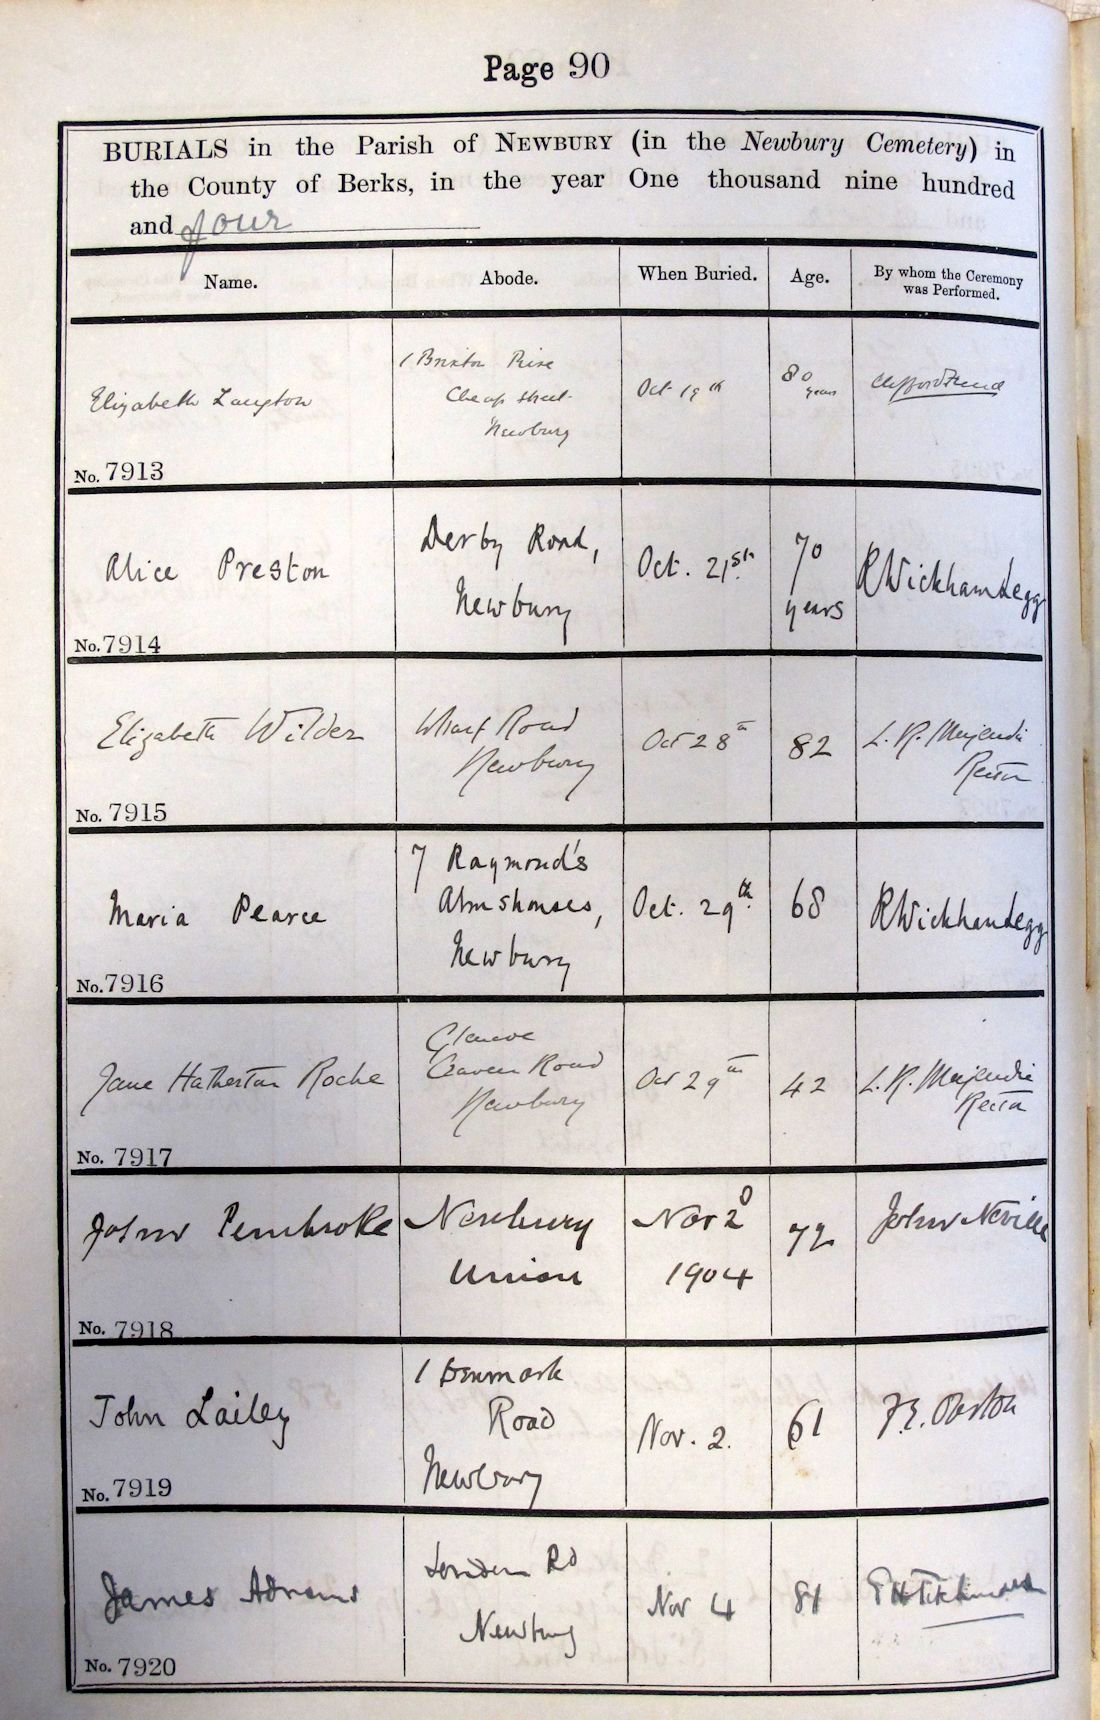 Page 90
BURIALS in the Parish of NEWBURY (in the Newbury Cemetery) in
the County of Berks, in the year One thousand nine hundred
and four
Name.
Abode.
When Buried.
Age.
By whom the Ceremony
was Performed.
Elizabeth Langton
No. 7913
1 Brixton Rise
Cheap Street
Newbury
Oct 19th
80
years
Clifford Freud
Alice Preston
No. 7914
Derby Road,
Newbury
Oct. 21st.
70
years
R Wickham Legg
Elizabeth Wilder
No. 7915
Wharf Road
Newbury
Oct 28th
82
L. R. Majendie
Rector
Maria Pearce
No. 7916
7 Raymond's
Almshouses,
Newbury
Oct. 29th.
68
R Wickham Legg
Jane Hatherton Roche
No. 7917
Craven Road
Newbury
Oct 29th
42
L. R. Majendie
Rector
John Pembroke
No. 7918
Newbury
Union
Nov 2
1904
72
John Neville
John Lailey
No. 7919
1 Denmark
Road
Newbury
Nov. 2.
61
F. E. Barton
James Adams
No. 7920
London Rd
Newbury
Nov 4
81